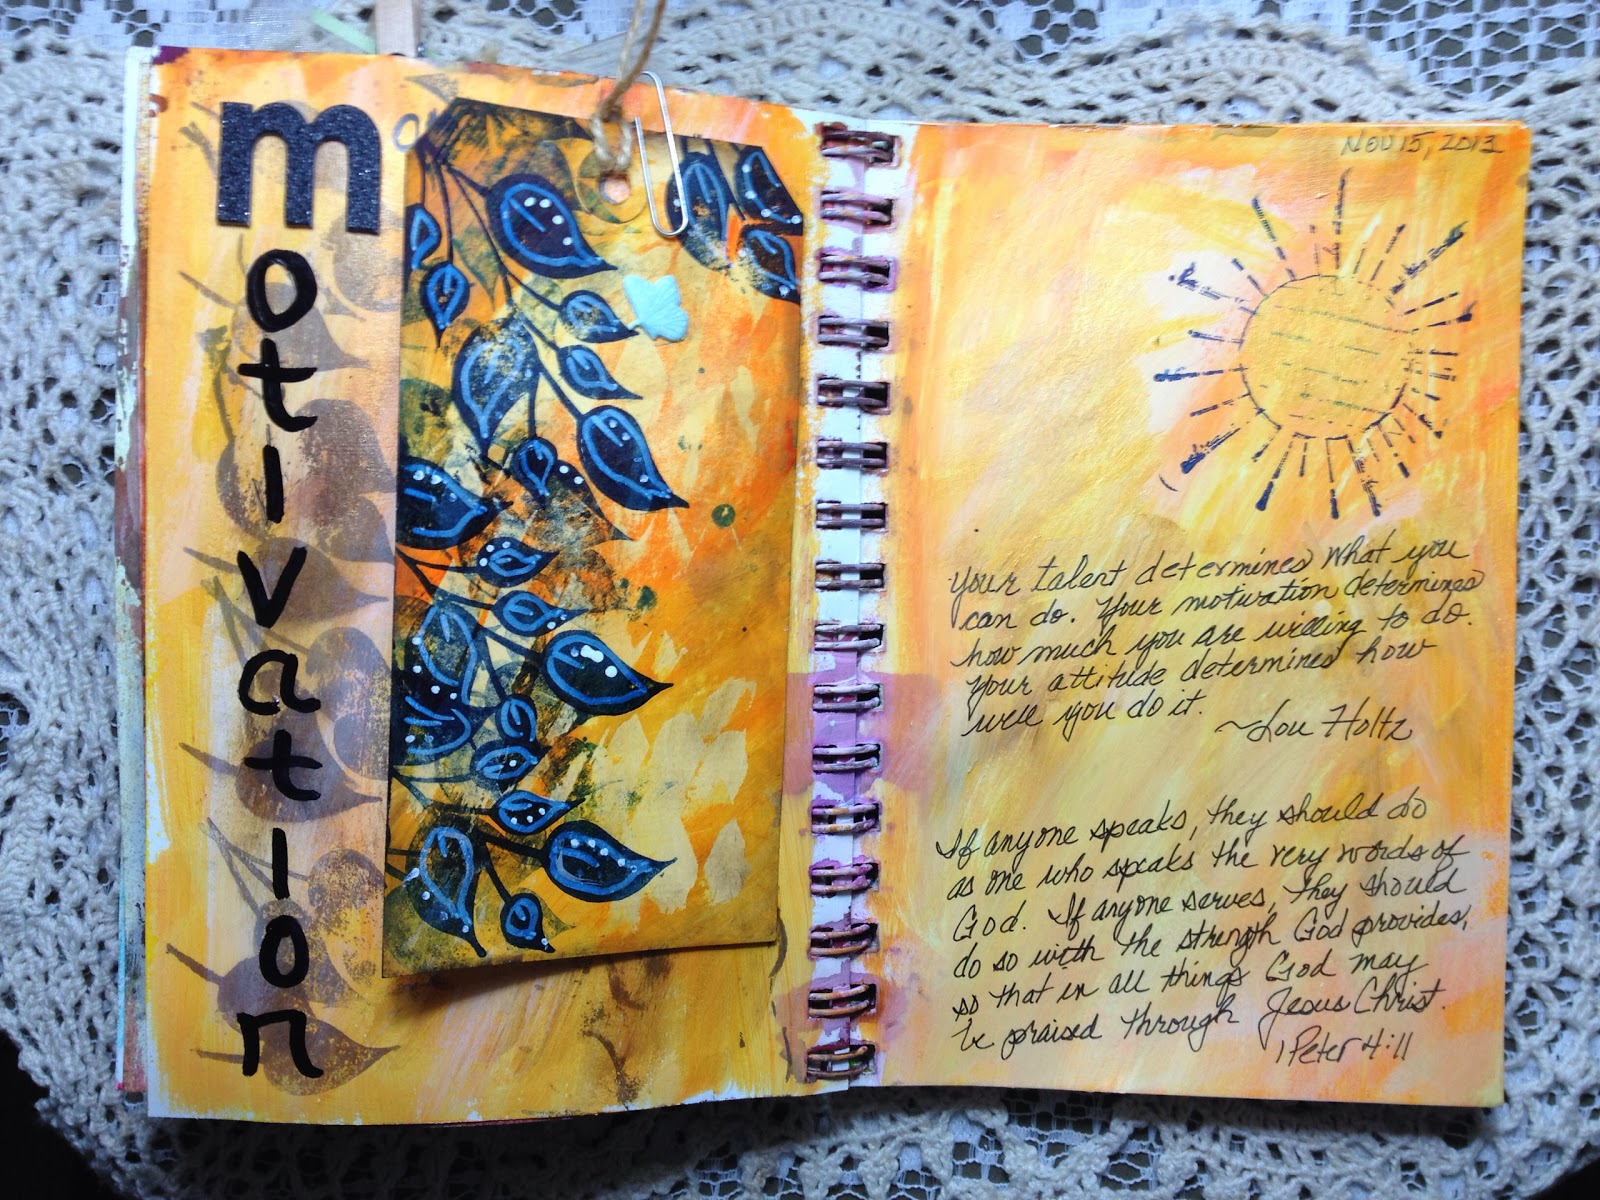 motivation
Nov 15, 2013
Your talent determines what you
can do. Your motivation determines
how much you are willing to do.
Your attitude determines how
well you do it.
~Lou Holtz
If anyone speaks, they should do
as one who speaks the very words of
God. If anyone serves, they should
do so with the strength God provides,
so that in all things God may
be praised through Jesus Christ.
1 Peter 4:11